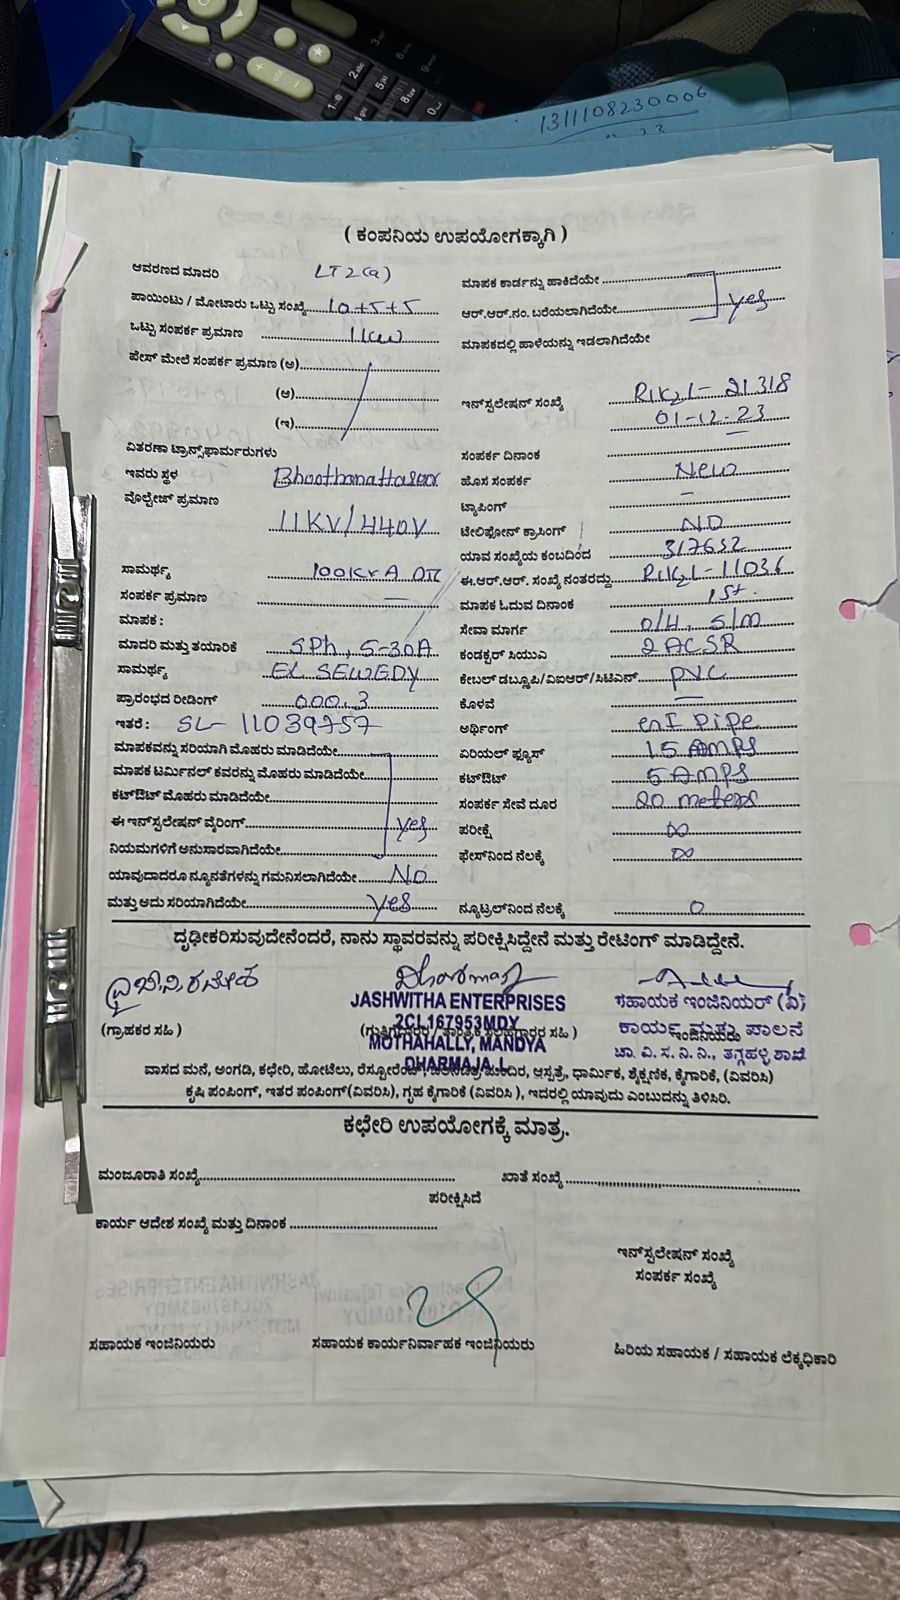 1311108230006
( ಕಂಪನಿಯ ಉಪಯೋಗಕ್ಕಾಗಿ )
ಆವರಣದ ಮಾದರಿ LT2(a)
ಪಾಯಿಂಟು / ಮೋಟಾರು ಒಟ್ಟು ಸಂಖ್ಯೆ 10+5+5
ಒಟ್ಟು ಸಂಪರ್ಕ ಪ್ರಮಾಣ 1kw
ಪೇಸ್ ಮೇಲೆ ಸಂಪರ್ಕ ಪ್ರಮಾಣ (ಅ)
(ಆ)
(ಇ)
ವಿತರಣಾ ಟ್ರಾನ್ಸ್‌ಫಾರ್ಮರುಗಳು
ಇವರು ಸ್ಥಳ
ವೊಲ್ಟೇಜ್ ಪ್ರಮಾಣ
11KV/440V
ಸಾಮರ್ಥ್ಯ 100KVA
ಸಂಪರ್ಕ ಪ್ರಮಾಣ —
ಮಾಪಕ :
ಮಾದರಿ ಮತ್ತು ತಯಾರಿಕೆ SPh, 5-30A
ಸಾಮರ್ಥ್ಯ EL SEWEDY
ಪ್ರಾರಂಭದ ರೀಡಿಂಗ್ 000.3
ಇತರೆ : SL- 11039757
ಮಾಪಕವನ್ನು ಸರಿಯಾಗಿ ಮೊಹರು ಮಾಡಿದೆಯೇ
ಮಾಪಕ ಟರ್ಮಿನಲ್ ಕವರನ್ನು ಮೊಹರು ಮಾಡಿದೆಯೇ
ಕಟ್‌ಔಟ್ ಮೊಹರು ಮಾಡಿದೆಯೇ
ಈ ಇನ್‌ಸ್ಟಲೇಷನ್ ವೈರಿಂಗ್ yes
ನಿಯಮಗಳಿಗೆ ಅನುಸಾರವಾಗಿದೆಯೇ
ಯಾವುದಾದರೂ ನ್ಯೂನತೆಗಳನ್ನು ಗಮನಿಸಲಾಗಿದೆಯೇ NO
ಮತ್ತು ಅದು ಸರಿಯಾಗಿದೆಯೇ yes
ಮಾಪಕ ಕಾರ್ಡನ್ನು ಹಾಕಿದೆಯೇ
ಆರ್.ಆರ್.ನಂ. ಬರೆಯಲಾಗಿದೆಯೇ yes
ಮಾಪಕದಲ್ಲಿ ಹಾಳೆಯನ್ನು ಇಡಲಾಗಿದೆಯೇ
ಇನ್‌ಸ್ಟಲೇಷನ್ ಸಂಖ್ಯೆ R1K2L-21318
01-12-23
ಸಂಪರ್ಕ ದಿನಾಂಕ
ಹೊಸ ಸಂಪರ್ಕ New
ಟ್ಯಾಪಿಂಗ್ —
ಟೆಲಿಫೋನ್ ಕ್ರಾಸಿಂಗ್ NO
ಯಾವ ಸಂಖ್ಯೆಯ ಕಂಬದಿಂದ 317632
ಈ.ಆರ್.ಆರ್. ಸಂಖ್ಯೆ ನಂತರದ್ದು R1K2L-11036
ಮಾಪಕ ಓದುವ ದಿನಾಂಕ 1st.
ಸೇವಾ ಮಾರ್ಗ O/H, S/M
ಕಂಡಕ್ಟರ್ ಸಿಯುಎ 2 ACSR
ಕೇಬಲ್ ಡಬ್ಲೂಪಿ/ವಿಐಆರ್/ಸಿಟಿಎನ್ PVC
ಕೊಳವೆ —
ಅರ್ಥಿಂಗ್ GI Pipe
ಏರಿಯಲ್ ಫ್ಯೂಸ್ 15 AMPS
ಕಟ್‌ಔಟ್ 5 AMPS
ಸಂಪರ್ಕ ಸೇವೆ ದೂರ 20 meters
ಪರೀಕ್ಷೆ ∞
ಫೇಸ್‌ನಿಂದ ನೆಲಕ್ಕೆ ∞
ನ್ಯೂಟ್ರಲ್‌ನಿಂದ ನೆಲಕ್ಕೆ 0
ದೃಢೀಕರಿಸುವುದೇನೆಂದರೆ, ನಾನು ಸ್ಥಾವರವನ್ನು ಪರೀಕ್ಷಿಸಿದ್ದೇನೆ ಮತ್ತು ರೇಟಿಂಗ್ ಮಾಡಿದ್ದೇನೆ.
JASHWITHA ENTERPRISES
2CL167953MDY
MOTHAHALLY, MANDYA
DHARMAJA.L
ಸಹಾಯಕ ಇಂಜಿನಿಯರ್ (ವಿ)
ಕಾರ್ಯ ಮತ್ತು ಪಾಲನೆ
ಚಾ. ವಿ. ಸ. ನಿ. ನಿ., ತಗ್ಗಹಳ್ಳಿ ಶಾಖೆ
(ಗ್ರಾಹಕರ ಸಹಿ )
ವಾಸದ ಮನೆ, ಅಂಗಡಿ, ಕಛೇರಿ, ಹೋಟೆಲು, ರೆಸ್ಟೋರೆಂಟ್, ಚಲನಚಿತ್ರ ಮಂದಿರ, ಆಸ್ಪತ್ರೆ, ಧಾರ್ಮಿಕ, ಶೈಕ್ಷಣಿಕ, ಕೈಗಾರಿಕೆ, (ವಿವರಿಸಿ)
ಕೃಷಿ ಪಂಪಿಂಗ್, ಇತರ ಪಂಪಿಂಗ್(ವಿವರಿಸಿ), ಗೃಹ ಕೈಗಾರಿಕೆ (ವಿವರಿಸಿ ), ಇದರಲ್ಲಿ ಯಾವುದು ಎಂಬುದನ್ನು ತಿಳಿಸಿರಿ.
ಕಛೇರಿ ಉಪಯೋಗಕ್ಕೆ ಮಾತ್ರ.
ಮಂಜೂರಾತಿ ಸಂಖ್ಯೆ ಖಾತೆ ಸಂಖ್ಯೆ
ಪರೀಕ್ಷಿಸಿದೆ
ಕಾರ್ಯ ಆದೇಶ ಸಂಖ್ಯೆ ಮತ್ತು ದಿನಾಂಕ
ಇನ್‌ಸ್ಟಲೇಷನ್ ಸಂಖ್ಯೆ
ಸಂಪರ್ಕ ಸಂಖ್ಯೆ
ಸಹಾಯಕ ಇಂಜಿನಿಯರು ಸಹಾಯಕ ಕಾರ್ಯನಿರ್ವಾಹಕ ಇಂಜಿನಿಯರು ಹಿರಿಯ ಸಹಾಯಕ / ಸಹಾಯಕ ಲೆಕ್ಕಧಿಕಾರಿ